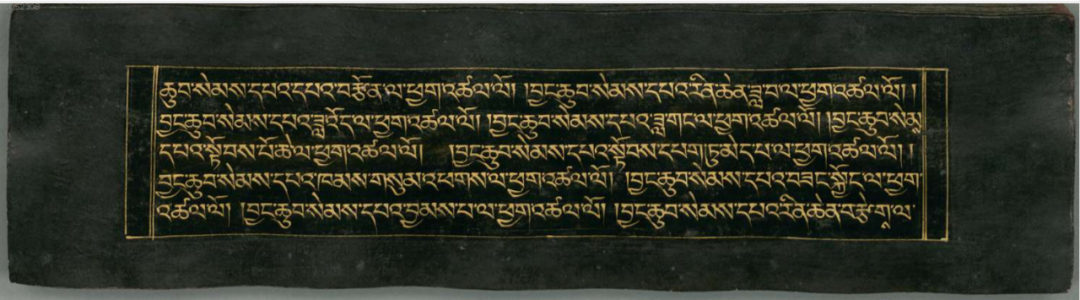 ཆུབ་སེམས་དཔའ་དཔའ་བརྩོན་ལ་ཕྱག་འཚལ་ལོ། །བྱང་ཆུབ་སེམས་དཔའ་རིན་ཆེན་ཟླ་བ་ལ་ཕྱག་འཚལ་ལོ། །
བྱང་ཆུབ་སེམས་དཔའ་ཟླ་འོད་ལ་ཕྱག་འཚལ་ལོ། །བྱང་ཆུབ་སེམས་དཔའ་ཟླ་གང་ལ་ཕྱག་འཚལ་ལོ། །བྱང་ཆུབ་སེམ
དཔའ་སྟོབས་པོ་ཆེ་ལ་ཕྱག་འཚལ་ལོ། །བྱང་ཆུབ་སེམས་དཔའ་སྟོབས་དཔག་ཏུ་མེད་པ་ལ་ཕྱག་འཚལ་ལོ། །
བྱང་ཆུབ་སེམས་དཔའ་ཁམས་གསུམ་འཕགས་ལ་ཕྱག་འཚལ་ལོ། །བྱང་ཆུབ་སེམས་དཔའ་བཟང་སྐྱོང་ལ་ཕྱག་
འཚལ་ལོ། །བྱང་ཆུབ་སེམས་དཔའ་བྱམས་པ་ལ་ཕྱག་འཚལ་ལོ། །བྱང་ཆུབ་སེམས་དཔའ་རིན་ཆེན་